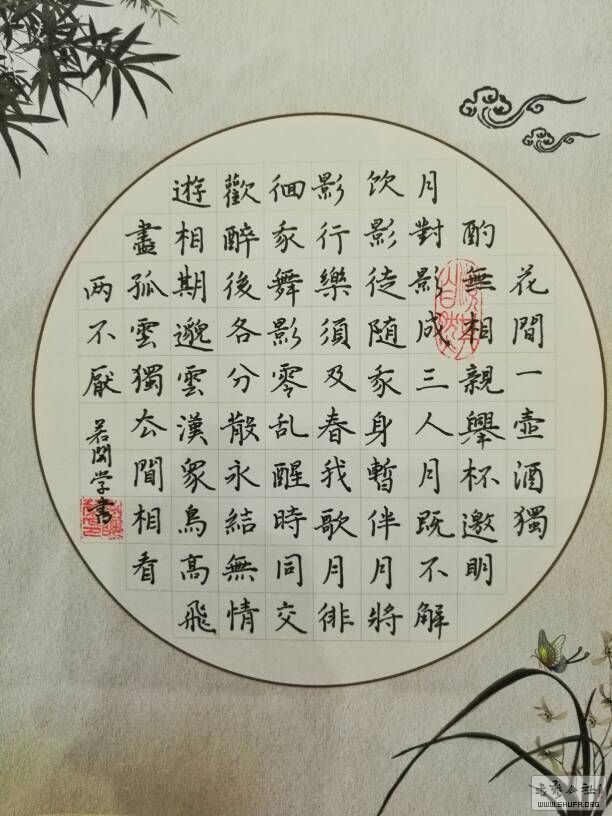 花間一壺酒獨
酌無相親舉杯邀明
月對影成三人月既不解
饮影徒随我身暫伴月將
影行樂須及春我歌月徘
徊我舞影零乱醒時同交
歡醉後各分散永結無情
遊相期邈雲漢衆鳥高飛
盡孤雲獨去間相看
两不厭
若闲学書
书法公社
WWW.SHUFA.ORG